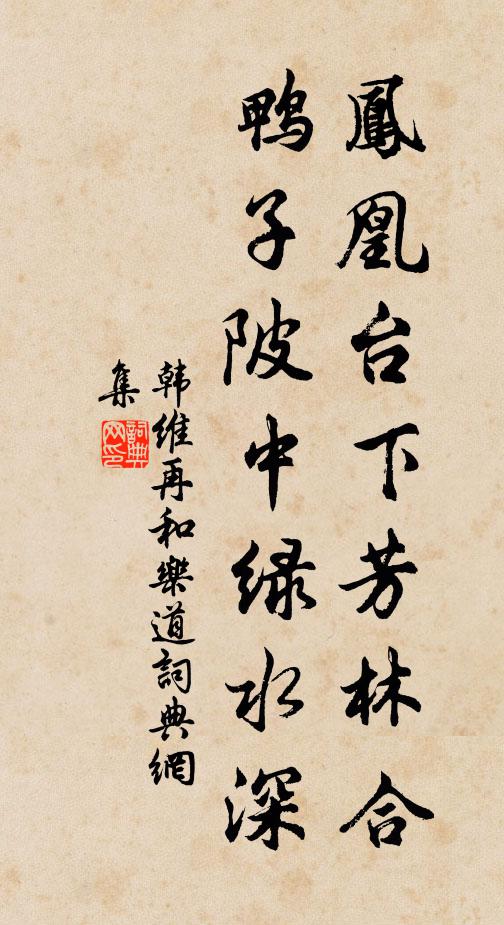 鳳凰台下芳林合
鸭子陂中绿水深
韩維再和樂道詞典網
集
詞典
网印